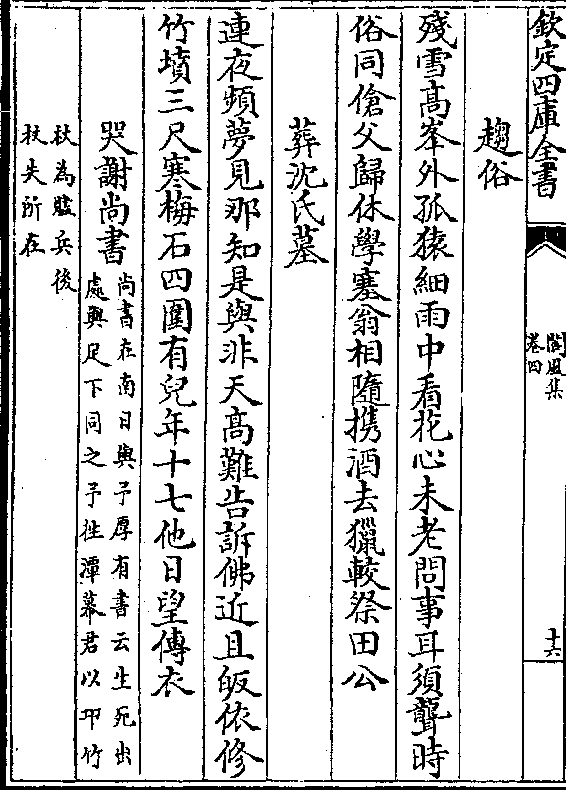 欽定四庫全書
閬風集
卷四
十六
趨俗
殘雪髙峯外孤猿細雨中看花心未老問事耳須聾時
俗同傖父歸休學塞翁相隨携酒去獵較祭田公
葬沈氏墓
連夜頻夢見那知是與非天髙難告訴佛近且皈依修
竹墳三尺寒梅石四圍有兒年十七他日望傳衣
哭謝尚書
尚書在南日與予厚有書云生死出
處與足下同之予徃潭幕君以卭竹
杖為贐兵後
杖失所在